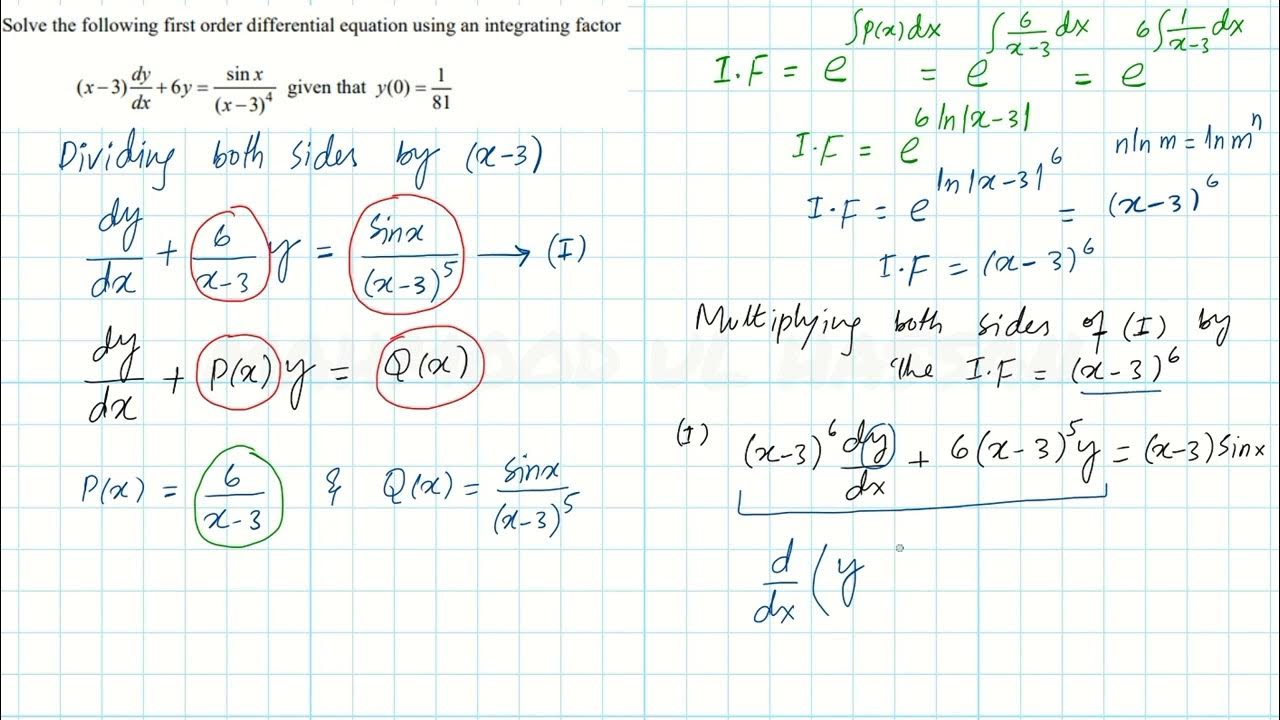 Solve the following first order differential equation using an integrating factor
(x−3) dy/dx + 6y = sin x/(x−3)⁴ given that y(0) = 1/81
Dividing both sides by (x-3)
dy/dx + 6/(x-3) y = sinx/(x-3)⁵ → (I)
dy/dx + P(x) y = Q(x)
P(x) = 6/(x-3) & Q(x) = sinx/(x-3)⁵
I.F = e^∫P(x)dx = e^∫6/(x-3) dx = e^6∫1/(x-3) dx
I.F = e^6 ln|x-3| n ln m = ln mⁿ
I.F = e^ln|x-3|⁶ = (x-3)⁶
I.F = (x-3)⁶
Multiplying both sides of (I) by
the I.F = (x-3)⁶
(I) (x-3)⁶ dy/dx + 6(x-3)⁵y = (x-3) sinx
d/dx ( y